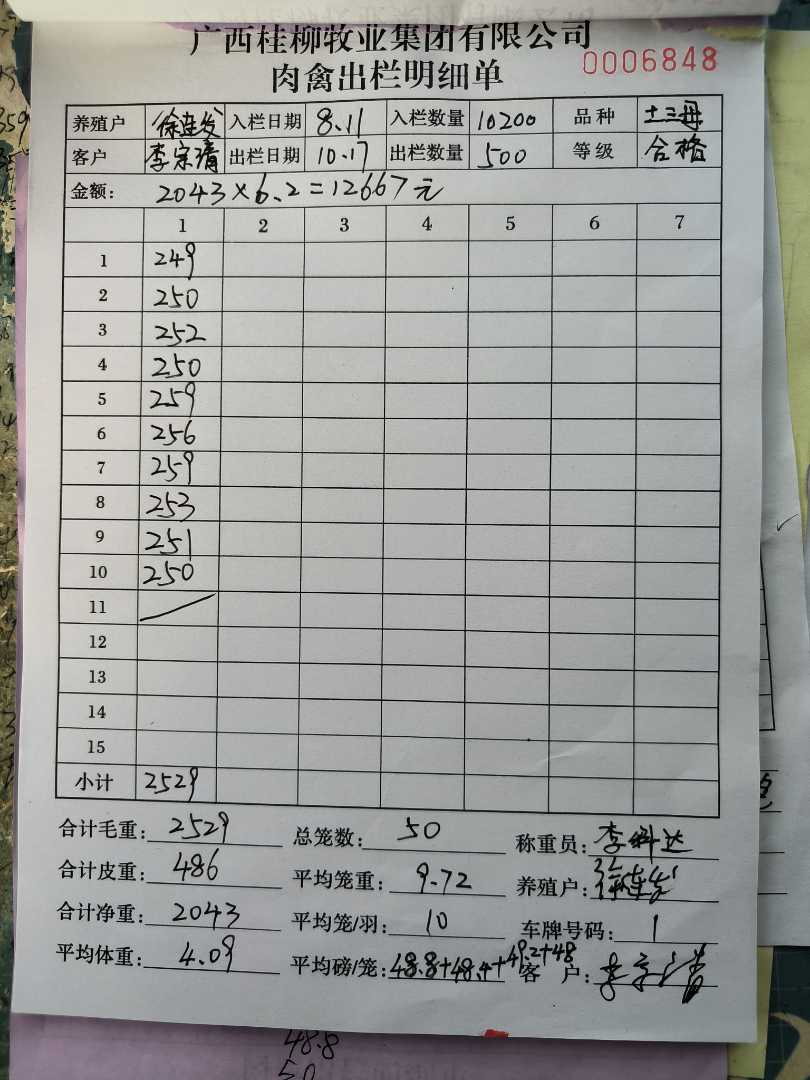 广西桂柳牧业集团有限公司
肉禽出栏明细单 0006848
养殖户 徐连发 入栏日期 8.11 入栏数量 10200 品种 土三母
客户 李宗清 出栏日期 10.17 出栏数量 500 等级 合格
金额： 2043×6.2=12667元
1 2 3 4 5 6 7
1 249
2 250
3 252
4 250
5 259
6 256
7 259
8 253
9 251
10 250
11
12
13
14
15
小计 2529
合计毛重： 2529 总笼数： 50 称重员： 李科达
合计皮重： 486 平均笼重： 9.72 养殖户： 徐连发
合计净重： 2043 平均笼/羽： 10 车牌号码： 1
平均体重： 4.09 平均磅/笼： 48.8+48.4+49.2+48 客户： 李宗清
48.8
50